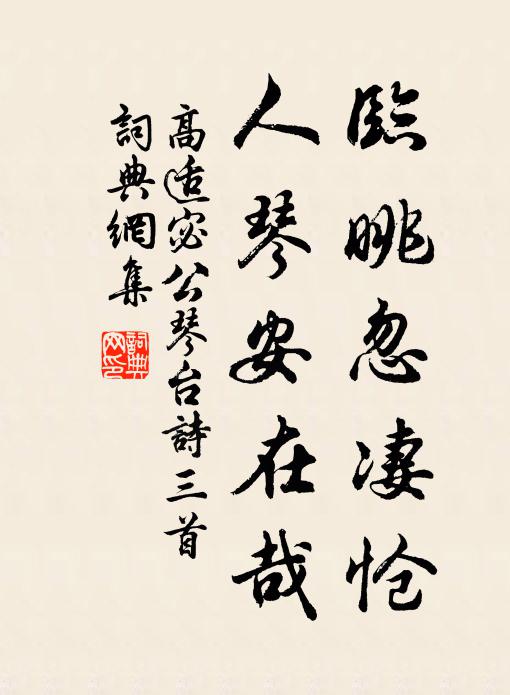 臨眺忽凄怆
人琴安在哉
高适宓公琴台詩三首
詞典網集
詞典网印